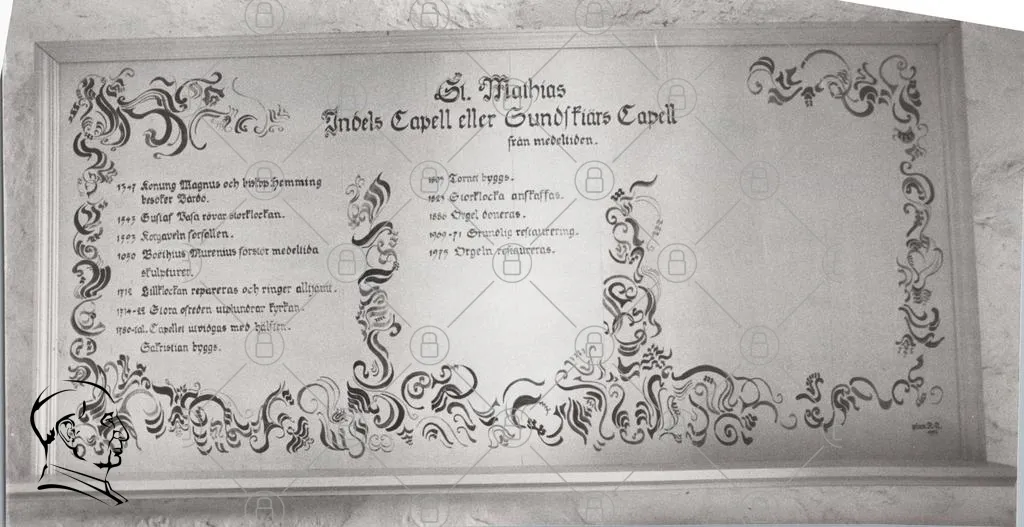 St. Mathias
Indels Capell eller Sundskiärs Capell
från medeltiden.
1347 Konung Magnus och biskop Hemming
besöker Vårdö.
1543 Gustaf Vasa rövar storklockan.
1593 förfallen.
Boëthius Murenius förstör medeltida
skulpturer.
1712 Lillklockan repareras och ringer alltjämt.
1714-22 Stora ofreden utplundrar kyrkan.
1780-tal. Capellet utvidgas med hälften.
Sakristian byggs.
Tornet byggs.
Storklocka anskaffas.
1886 Orgel doneras.
1969-71 Grundlig restaurering.
1975 Orgeln restaureras.